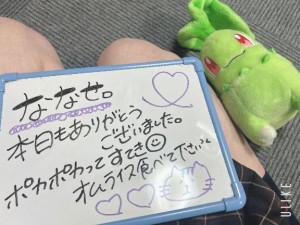 ななせ。
本日もありがとう
ございました。
ポカポカってすてき
オムライス食べて下さい
ULIKE